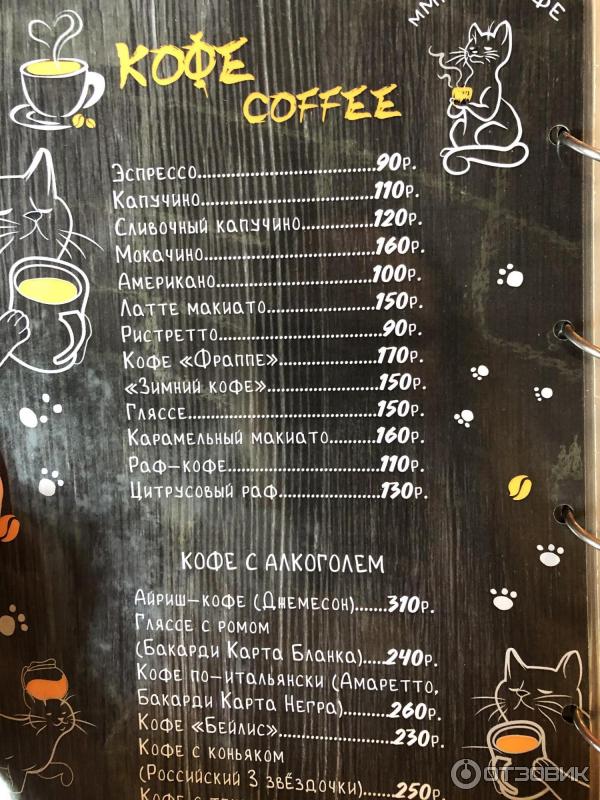 КОФЕ
COFFEE
Эспрессо 90р.
Капучино 110р.
Сливочный капучино 120р.
Мокачино 160р.
Американо 100р.
Латте макиато 150р.
Ристретто 90р.
Кофе «Фраппе» 170р.
«Зимний кофе» 150р.
Глясcе 150р.
Карамельный макиато 160р.
Раф-кофе 110р.
Цитрусовый раф 130р.
КОФЕ С АЛКОГОЛЕМ
Айриш-кофе (Джемесон) 310р.
Глясcе с ромом
(Бакарди Карта Бланка) 240р.
Кофе по-итальянски (Амаретто,
Бакарди Карта Негра) 260р.
Кофе «Бейлис» 230р.
Кофе с коньяком
(Российский 3 звёздочки) 250р.
Кофе с
ОТЗОВИК